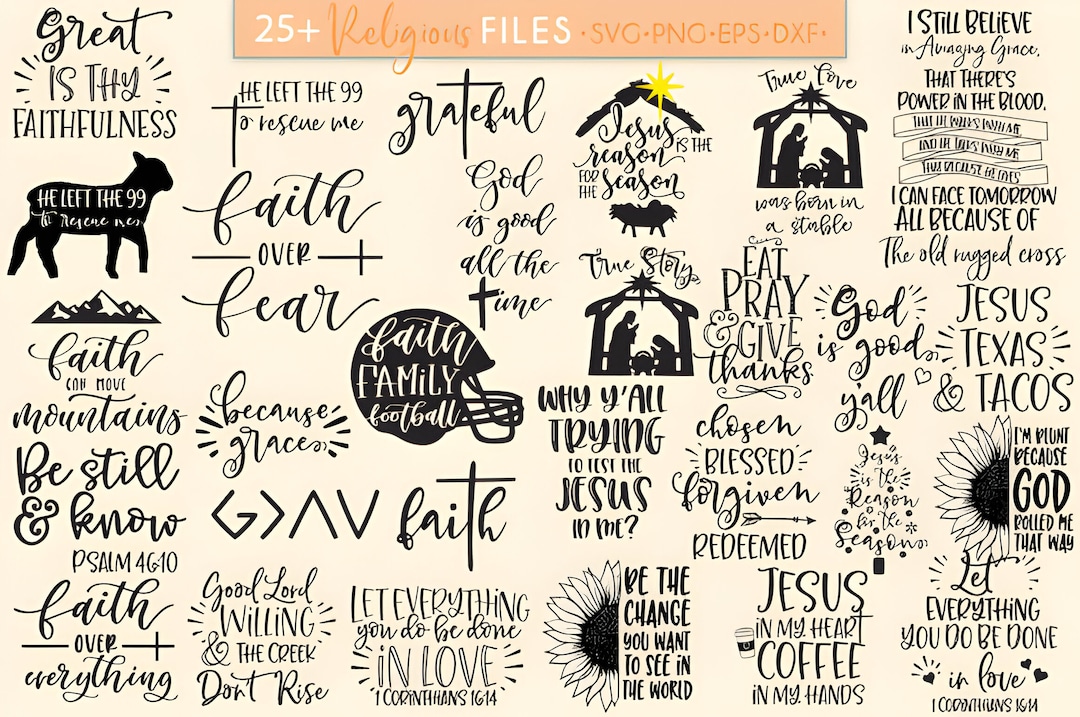 25+ Religious FILES · SVG·PNG·EPS·DXF·
Great
IS THY
FAITHFULNESS
HE LEFT THE 99
to rescue me
grateful
Jesus
IS THE
reason
FOR
THE
season
True Love
was born in
a stable
I STILL BELIEVE
in Amazing Grace,
THAT THERE'S
POWER IN THE BLOOD.
THAT HE WALKS WITH ME
AND HE TALKS WITH ME
I CAN FACE TOMORROW
ALL BECAUSE OF
The old rugged cross
HE LEFT THE 99
to rescue me
faith
OVER
fear
God
is good
all the
time
True Story
EAT
PRAY
& GIVE
thanks
God
is good
y'all
JESUS
TEXAS
& TACOS
faith
CAN MOVE
mountains
because
grace
faith
FAMILY
football
WHY Y'ALL
TRYING
TO TEST THE
JESUS
IN ME?
chosen
BLESSED
forgiven
REDEEMED
Jesus
is the
Reason
for the
Season
I'M BLUNT
BECAUSE
GOD
ROLLED ME
THAT WAY
Be still
& know
PSALM 46:10
G>ΛV
faith
faith
OVER
everything
Good Lord
WILLING
& THE CREEK
Don't Rise
LET EVERYTHING
you do be done
IN LOVE
1 CORINTHIANS 16:14
BE THE
CHANGE
YOU WANT
TO SEE IN
THE WORLD
JESUS
IN MY HEART
COFFEE
IN MY HANDS
Let
EVERYTHING
YOU DO BE DONE
in love
1 CORINTHIANS 16:14